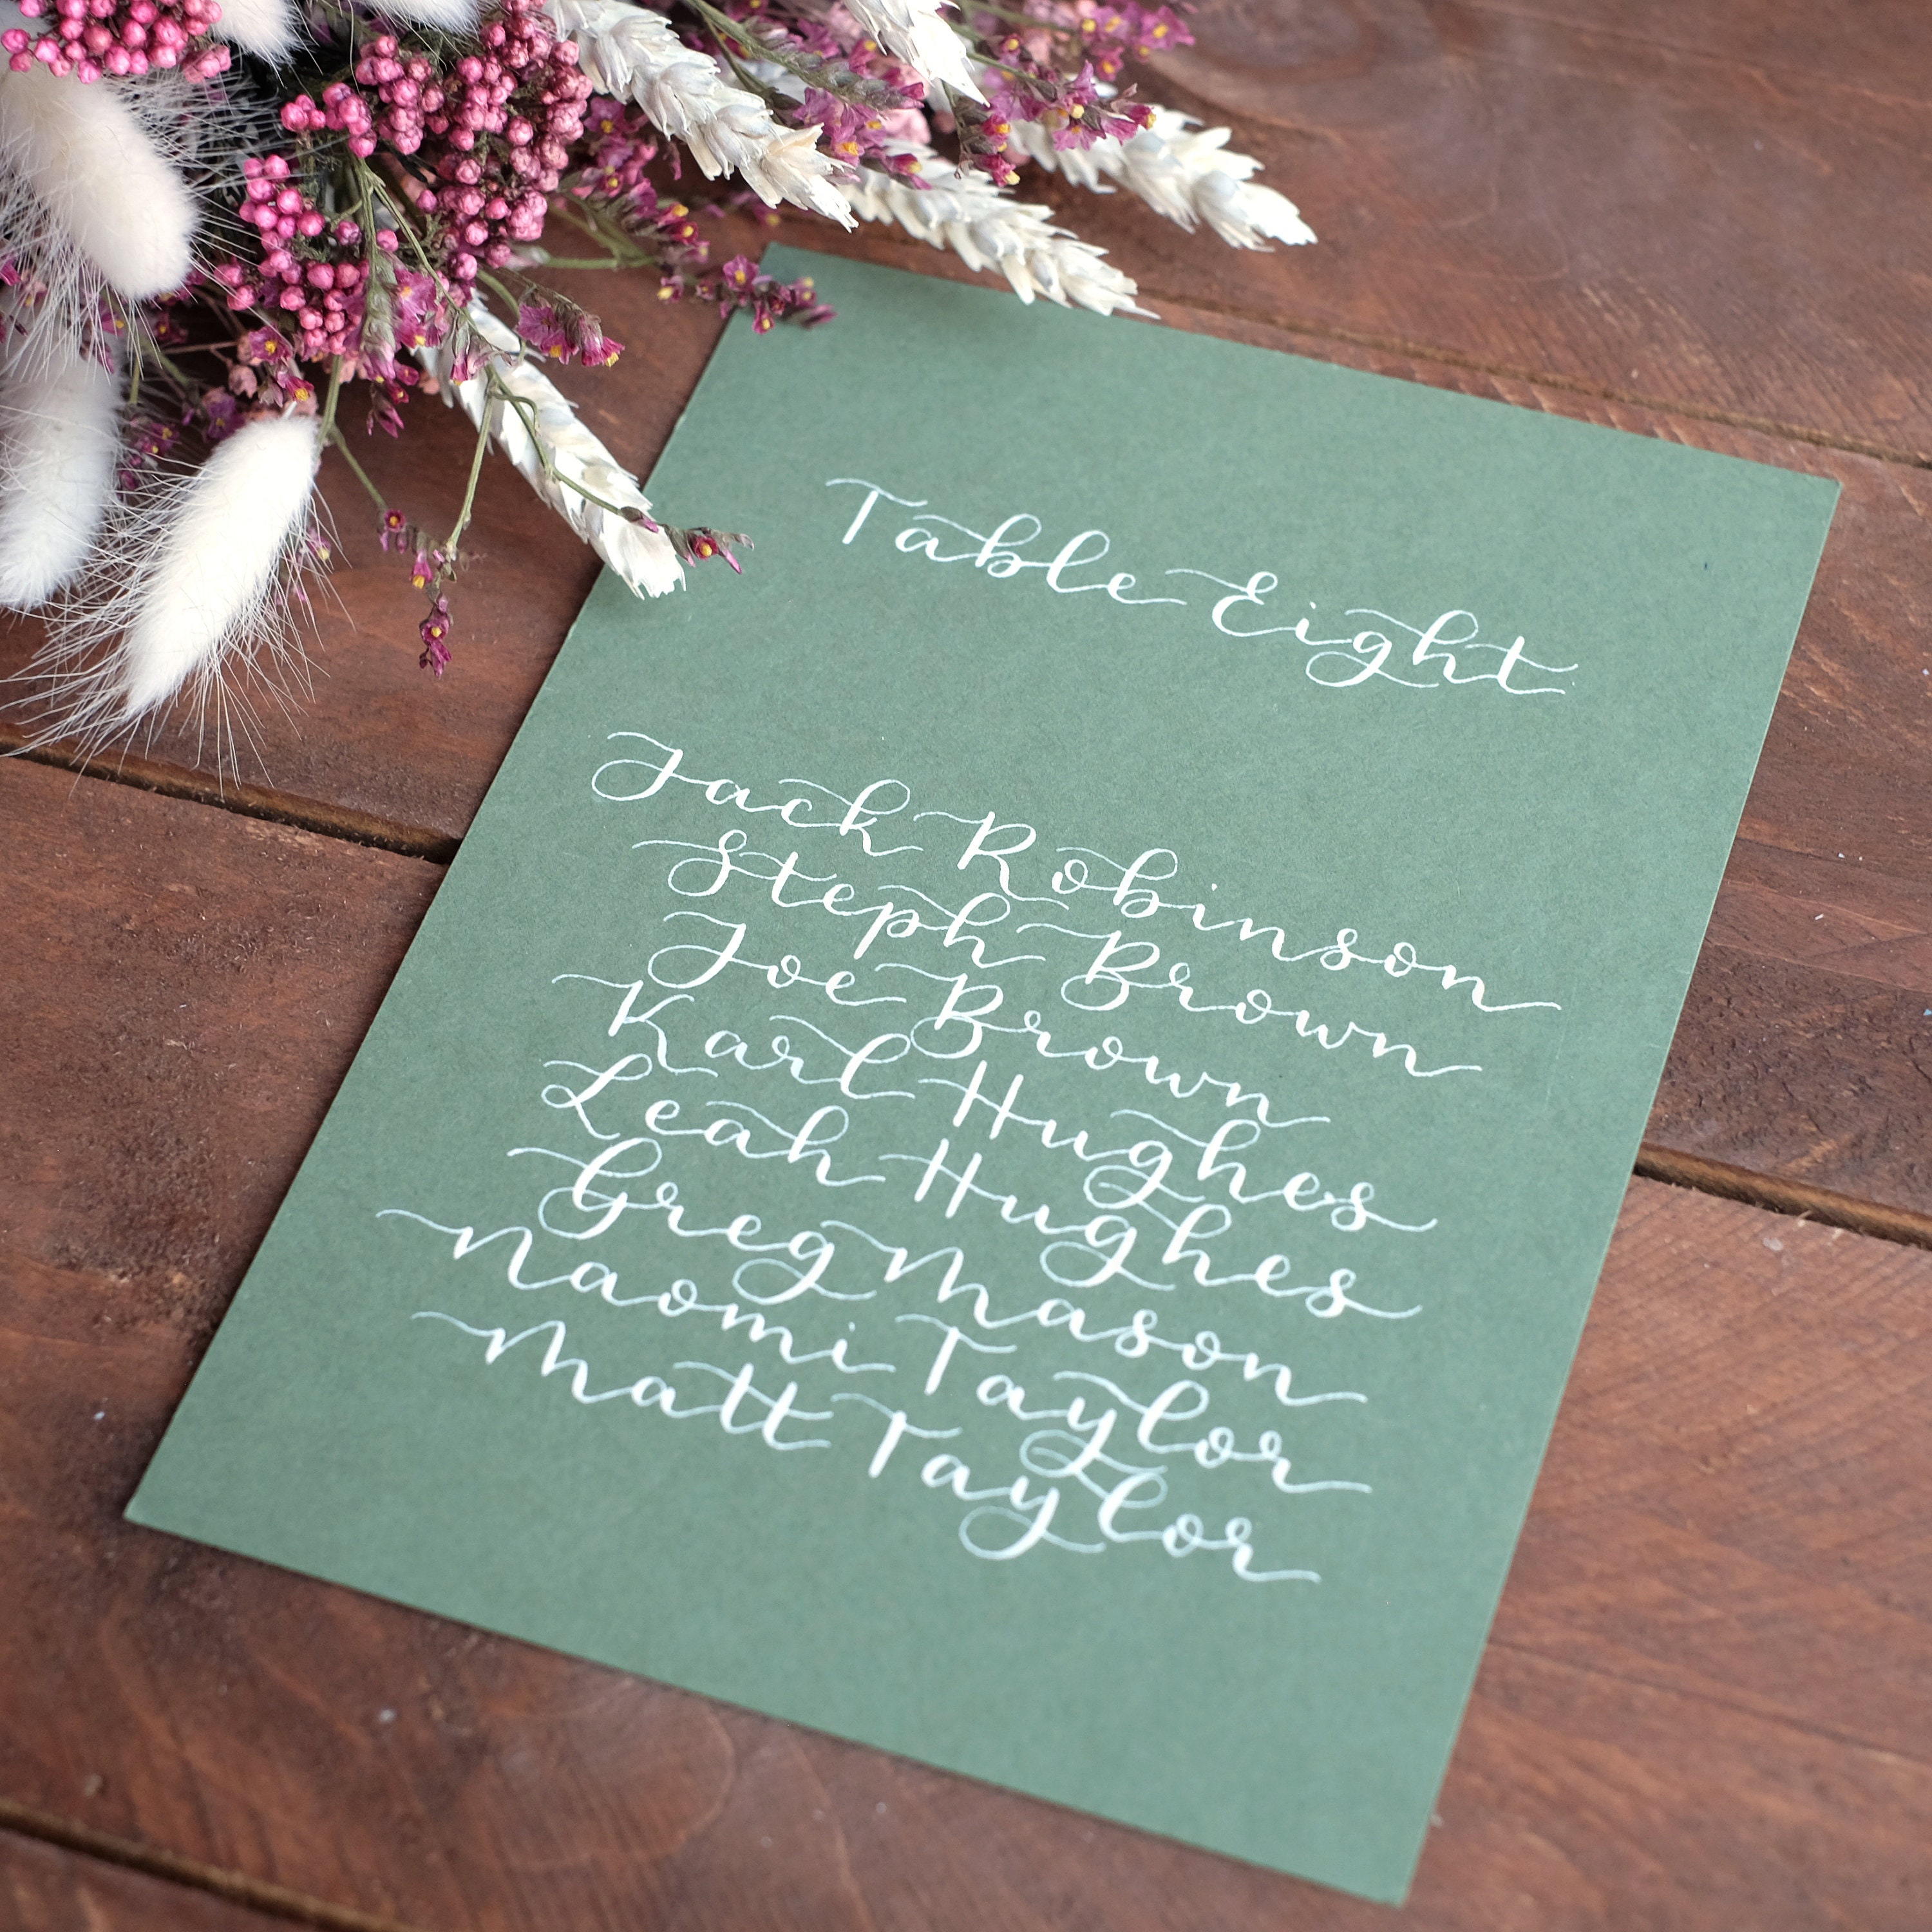 Table Eight
Jack Robinson
Steph Brown
Joe Brown
Karl Hughes
Leah Hughes
Greg Mason
Naomi Taylor
Matt Taylor